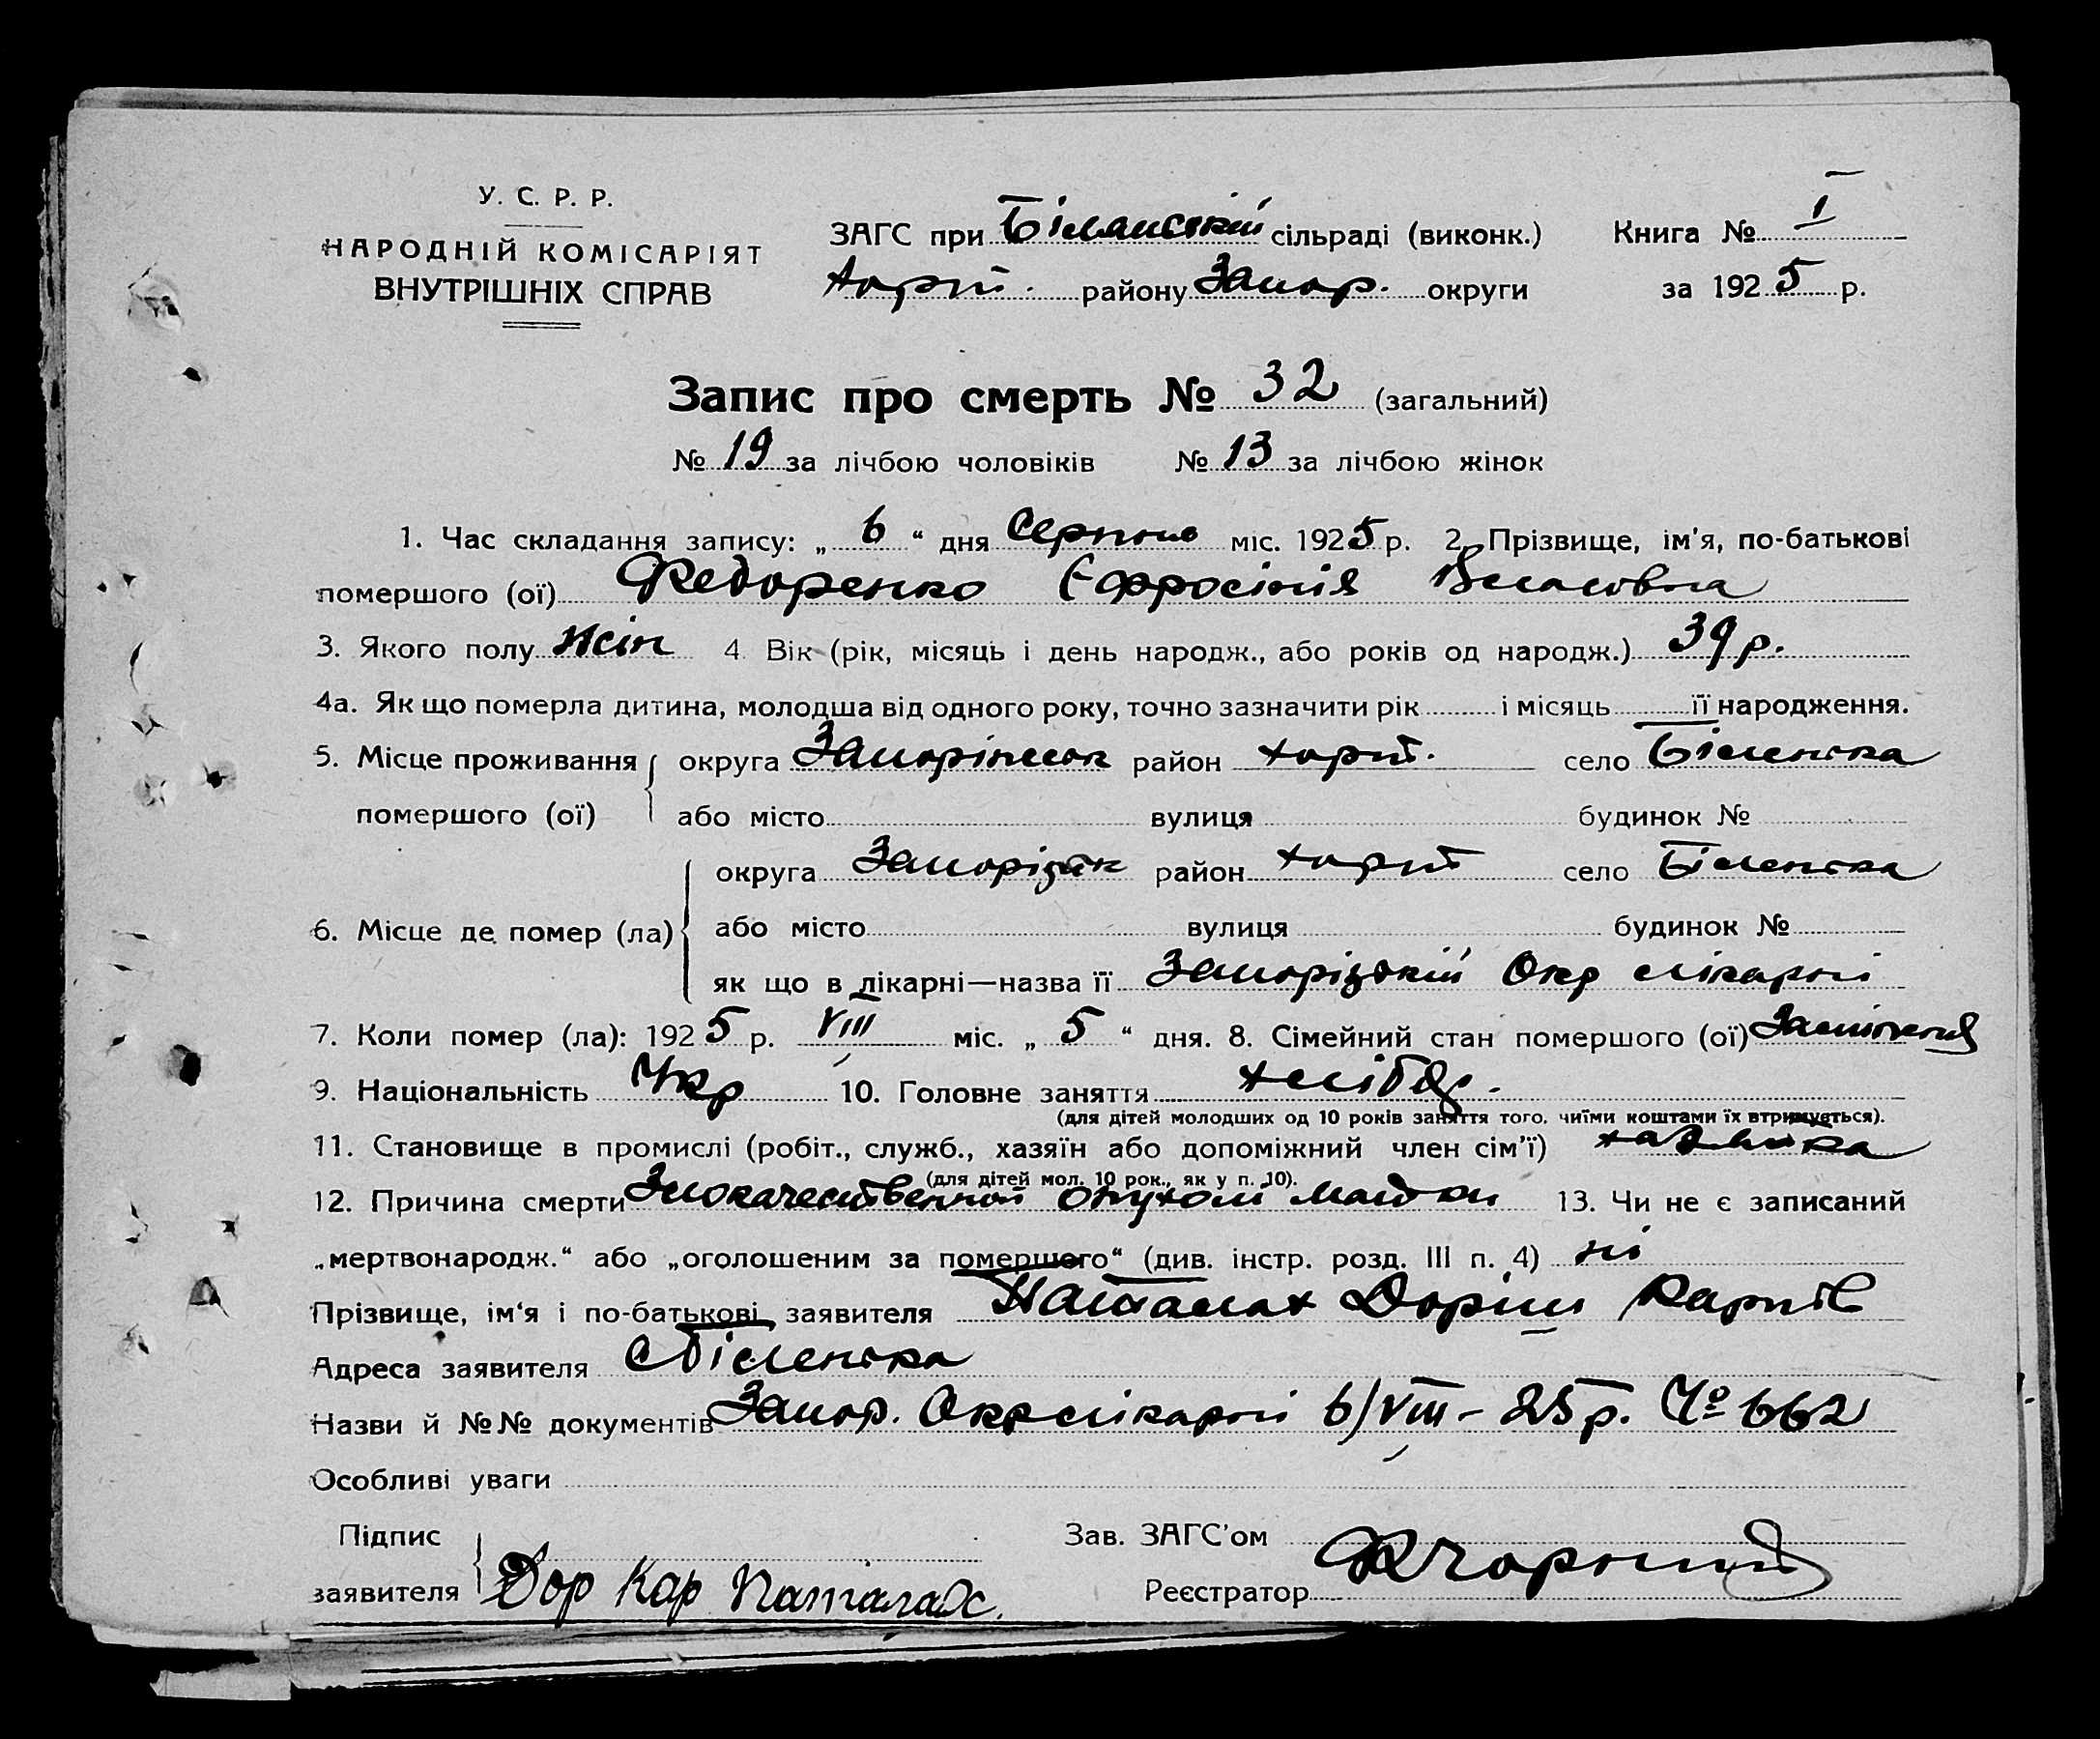 У. С. Р. Р.
НАРОДНІЙ КОМІСАРІЯТ
ВНУТРІШНІХ СПРАВ
ЗАГС при Біланській сільраді (виконк.) Книга № I
Хорт. району Запор. округи за 1925 р.
Запис про смерть № 32 (загальний)
№ 19 за лічбою чоловіків № 13 за лічбою жінок
1. Час складання запису: „ 6 “ дня Серпня міс. 1925 р. 2. Прізвище, ім'я, по-батькові
помершого (ої) Федоренко Єфросінія Власовна
3. Якого полу жін 4. Вік (рік, місяць і день народж., або років од народж.) 39 р.
4а. Як що померла дитина, молодша від одного року, точно зазначити рік і місяць її народження.
5. Місце проживання помершого (ої) округа район Хорт. село Біленька
або місто вулиця будинок №
6. Місце де помер (ла) округа район Хорт село Біленька
або місто вулиця будинок №
як що в лікарні—назва її Запорізькій Окр лікарні
7. Коли помер (ла): 1925 р. VIII міс. „ 5 “ дня. 8. Сімейний стан помершого (ої)
9. Національність Укр 10. Головне заняття хлібор.
(для дітей молодших од 10 років заняття того, чиїми коштами їх втримується).
11. Становище в промислі (робіт., служб., хазяїн або допоміжний член сім'ї) хазяйка
(для дітей мол. 10 рок., як у п. 10).
12. Причина смерти Злокачественной опухоли матки 13. Чи не є записаний
„мертвонародж.“ або „оголошеним за помершого“ (див. інстр. розд. III п. 4) ні
Прізвище, ім'я і по-батькові заявителя Паталах Дорит Карпів
Адреса заявителя с Біленька
Назви й №№ документів Запор. Окрлікарні 6/VIII – 25 р. № 662
Особливі уваги
Підпис заявителя Дор Кар Паталах.
Зав. ЗАГС'ом
Реєстратор